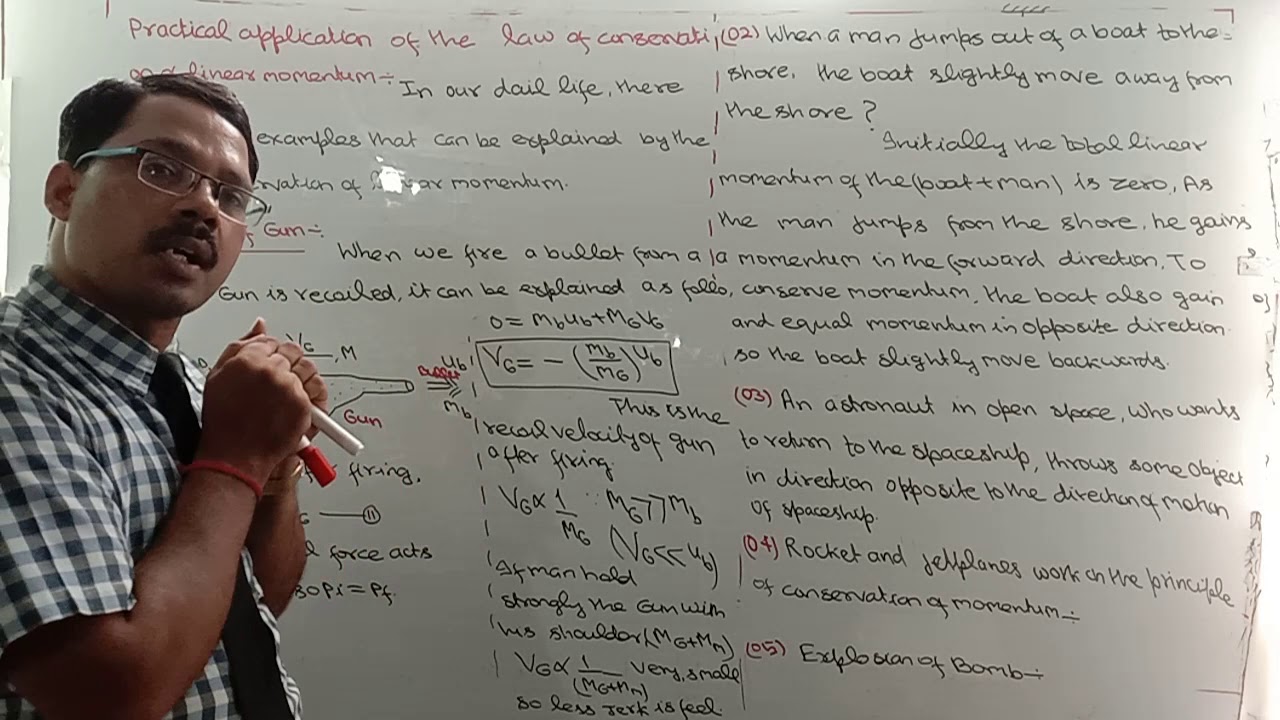 Practical application of the law of conservati
linear momentum÷ In our dail life, there
examples that can be explained by the
rvation of linear momentum.
Gun÷
When we fire a bullet from a
Gun is recailed, it can be explained as follo
VG, M
Bullet ub
mb
Gun
firing.
—(11)
force acts
so Pi = Pf.
0 = mbub + MGVG
VG = - (mb/MG) ub
This is the
recoil velocity of gun
after firing.
VG ∝ 1/MG ∵ MG >> mb
(VG << ub)
If man hold
strongly the Gun with
his shoulder (MG+Mm)
VG ∝ 1/(MG+Mm) very, small
so less jerk is feel.
(02) When a man Jumps out of a boat to the
shore, the boat slightly move away from
the shore ?
Initially the total linear
momentum of the (boat+man) is zero, As
the man jumps from the shore, he gains
a momentum in the forward direction, To
conserve momentum, the boat also gain
and equal momentum in opposite direction.
so the boat slightly move backwards.
(03) An astronaut in open space, who wants
to return to the spaceship, throws some object
in direction opposite to the direction of motion
of spaceship.
(04) Rocket and jetplanes work on the principle
of conservation of momentum÷
(05) Explosion of Bomb÷